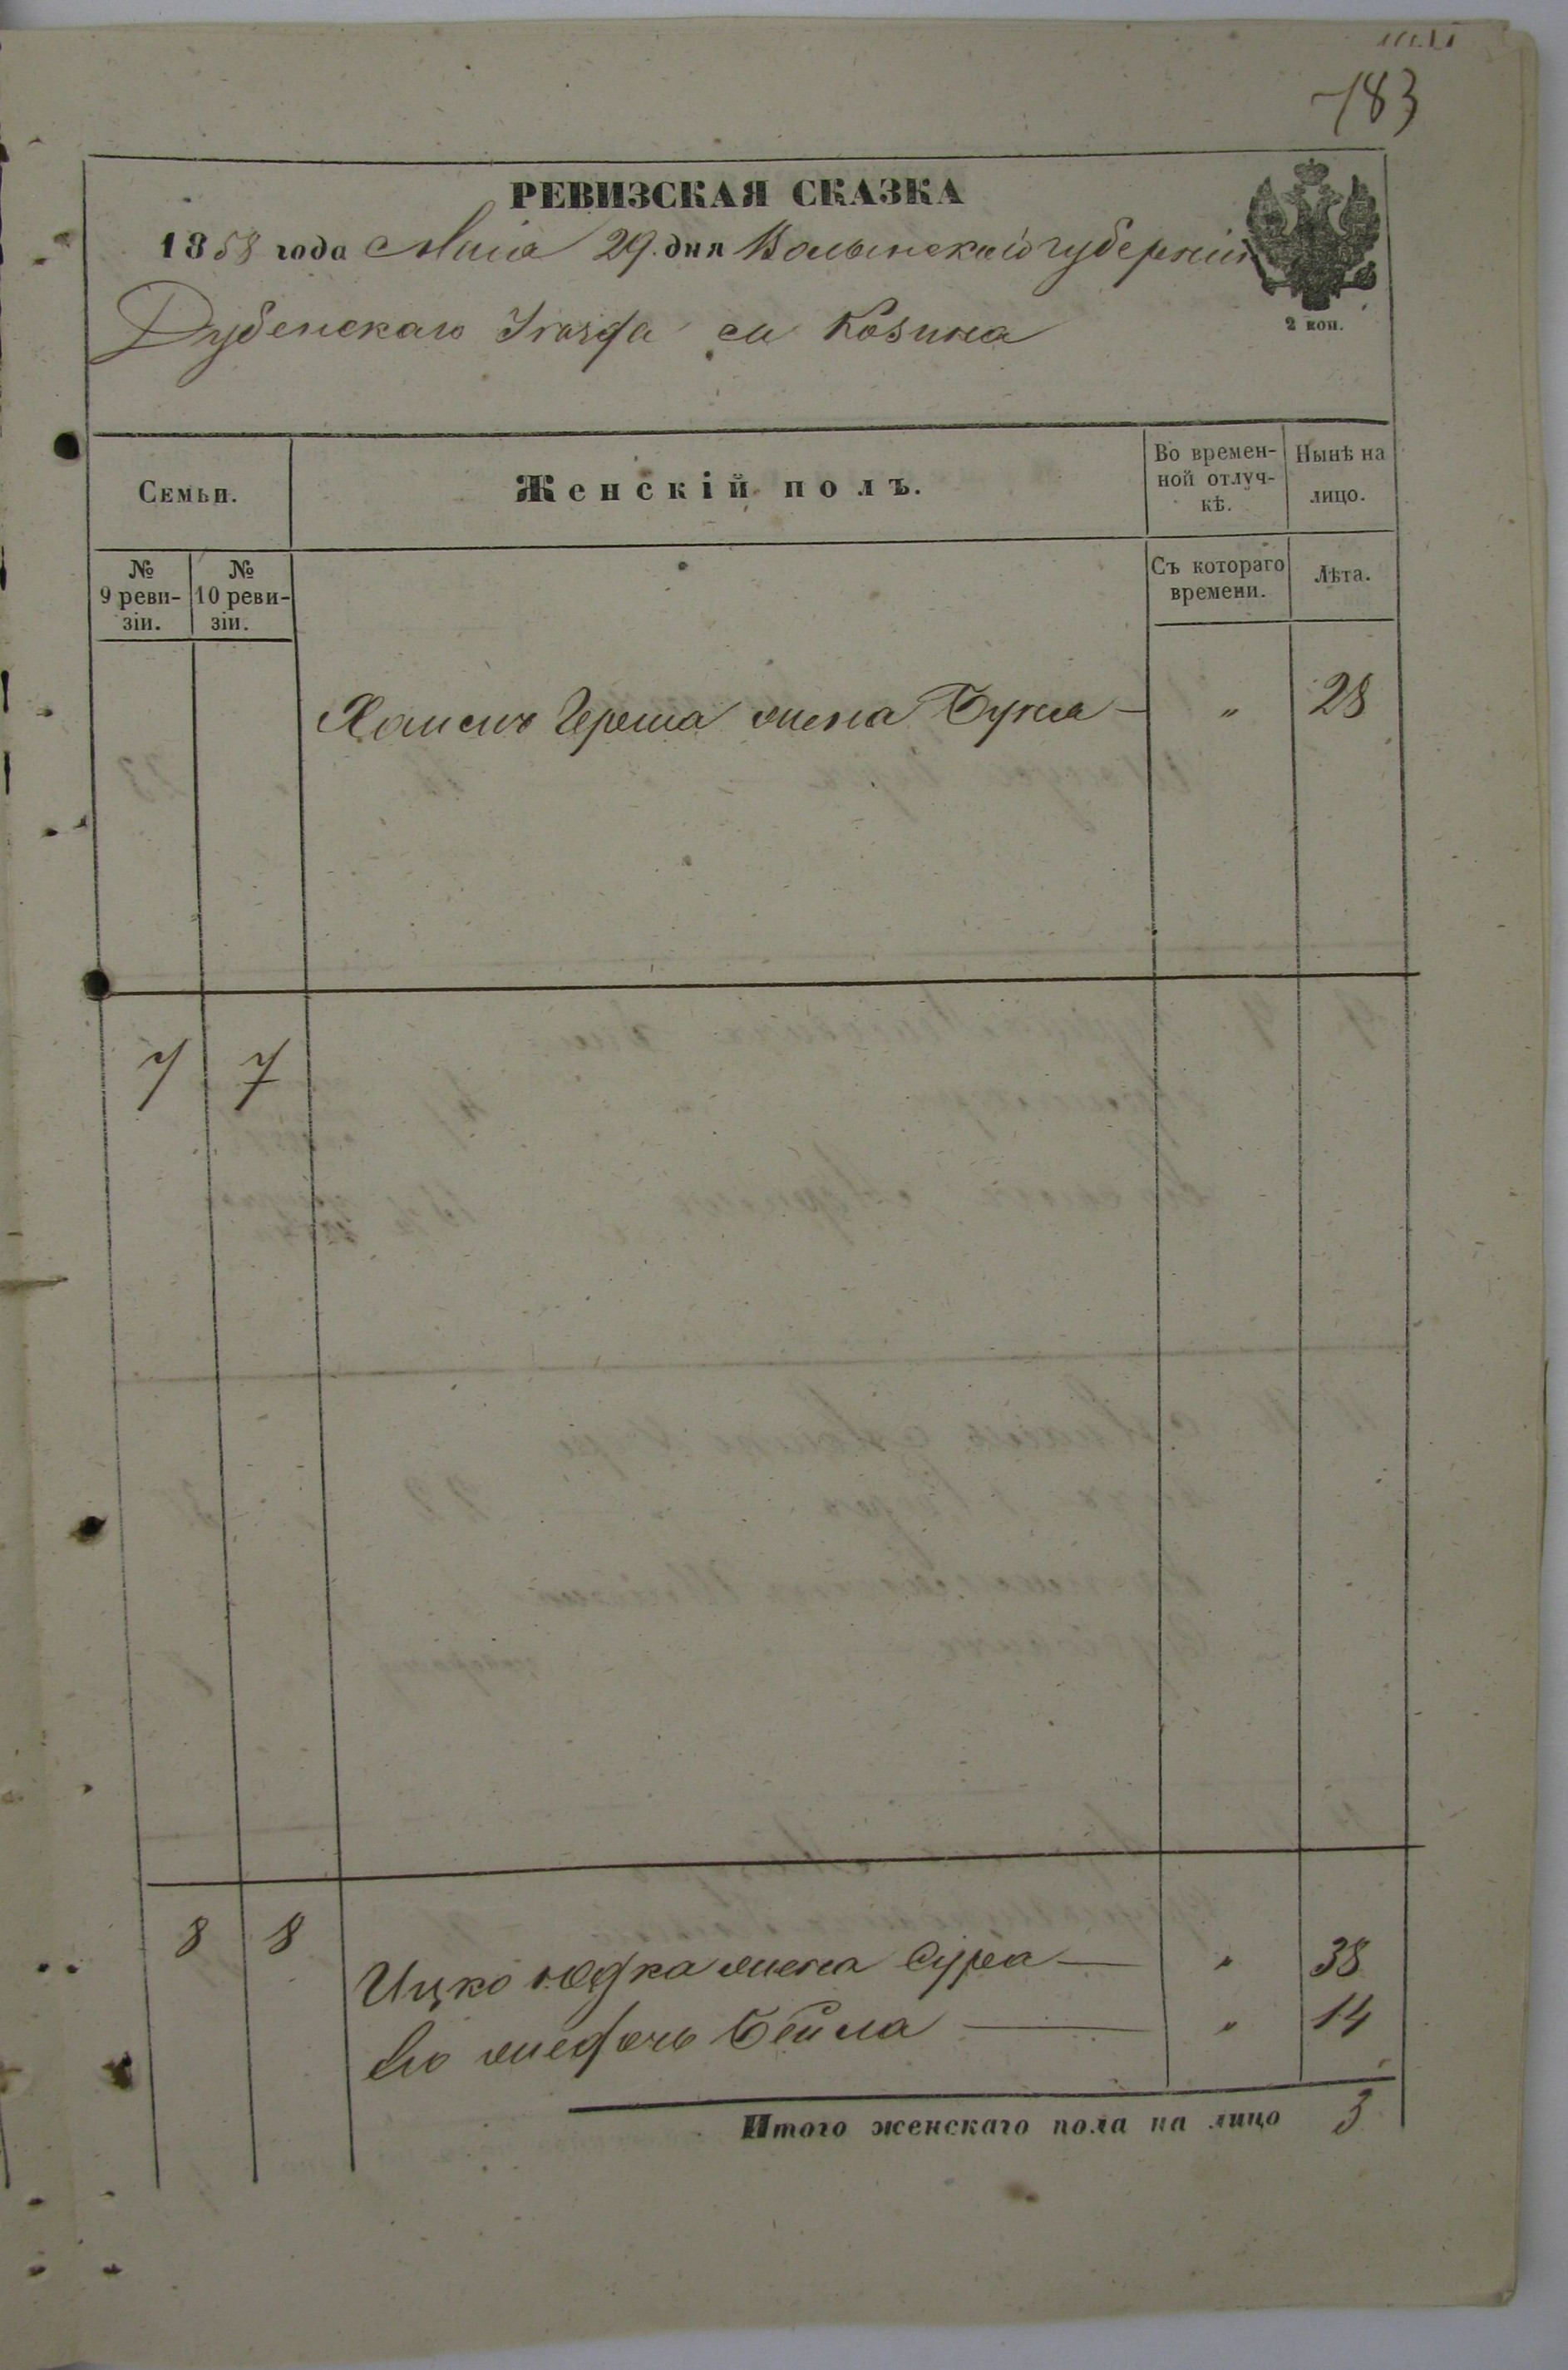 183
РЕВИЗСКАЯ СКАЗКА
1858 года Маія 29. дня Волынской губерніи
2 коп.
Дубенскаго Уезда м Козина
Семьи.
Женскій полъ.
Во времен-
ной отлуч-
кѣ.
Нынѣ на
лицо.
№
9 реви-
зіи.
№
10 реви-
зіи.
Съ котораго
времени.
Лѣта.
Герша жена — „ 28
7 7
8 8
Ицко Юдка жена Сура — „ 38
Бейла — „ 14
Итого женскаго пола на лицо 3